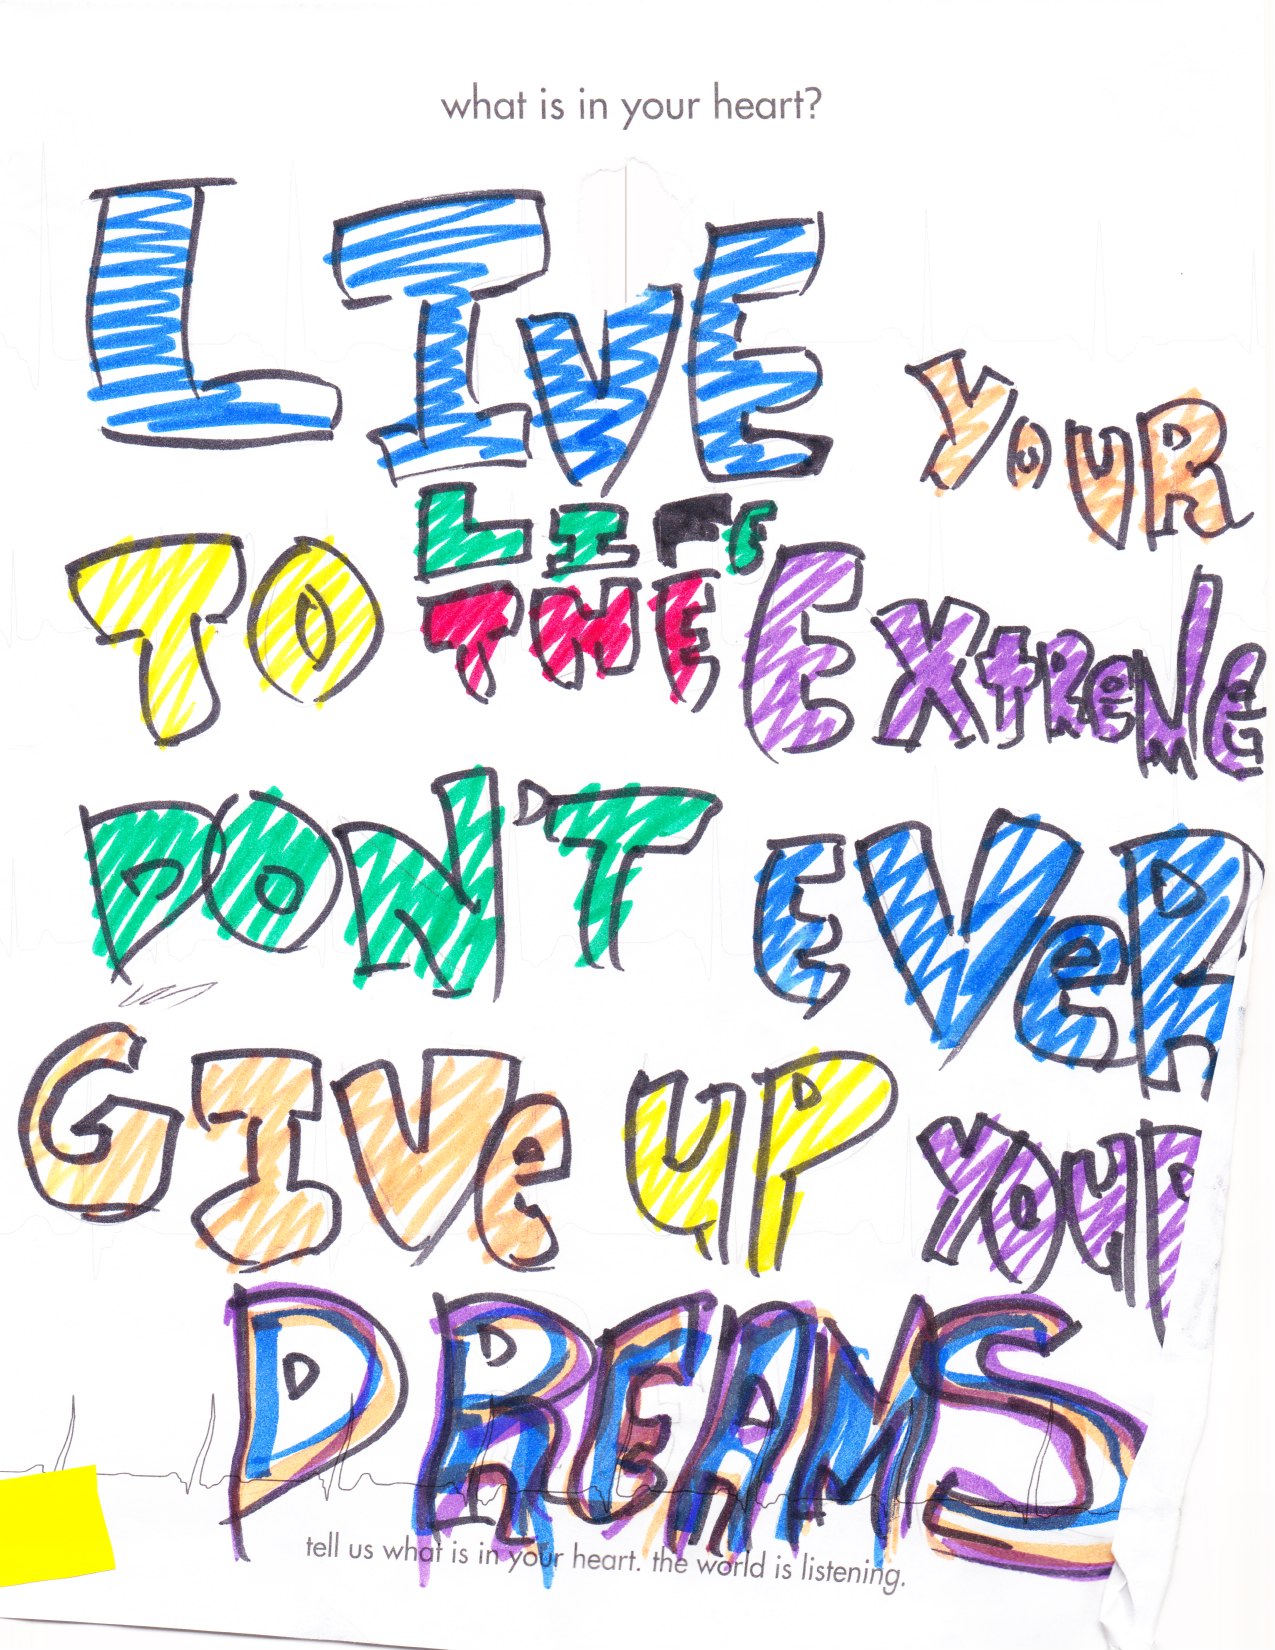 what is in your heart?
LIvE YoUR
LIFE
TO THE EXtReMe
DON'T EVeR
GIVe UP YouR
DREAMS
tell us what is in your heart. the world is listening.